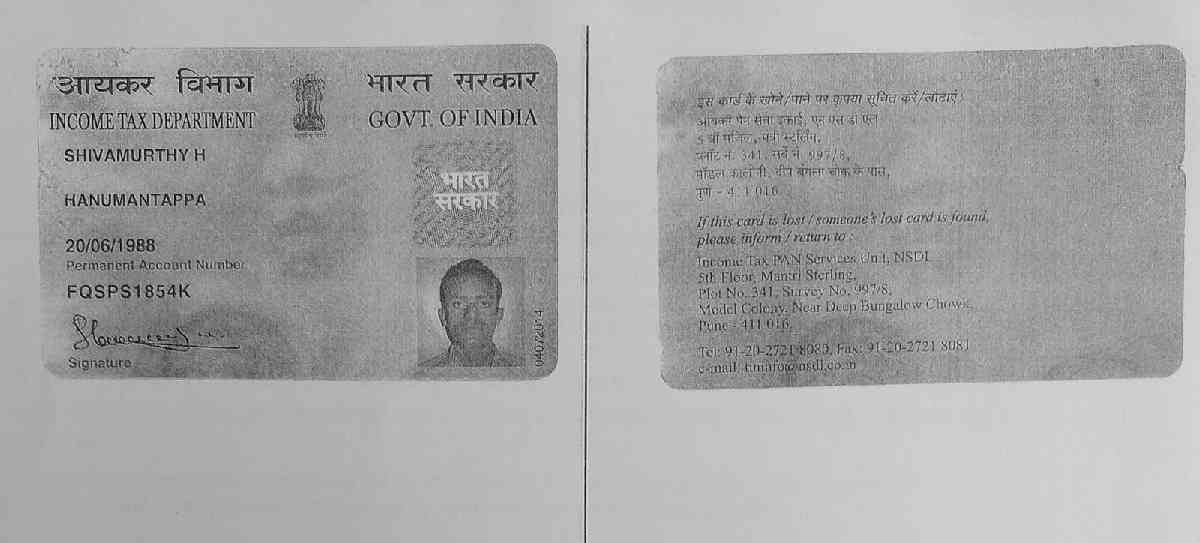 आयकर विभाग
भारत सरकार
INCOME TAX DEPARTMENT
GOVT. OF INDIA
SHIVAMURTHY H
HANUMANTAPPA
20/06/1988
Permanent Account Number
FQSPS1854K
Signature
भारत
सरकार
04072014
इस कार्ड के खोने/पाने पर कृपया सूचित करें/लौटाएं:
आयकर पैन सेवा इकाई, एन एस डी एल
5 वीं मंजिल, मंत्री स्टर्लिंग,
प्लॉट नं. 341, सर्वे नं. 997/8,
मॉडल कालोनी, दीप बंगला चौक के पास,
पुणे -
If this card is lost / someone's lost card is found,
please inform / return to :
Income Tax PAN Services Unit, NSDL
5th Floor, Mantri Sterling,
Plot No. 341, Survey No. 997/8,
Model Colony, Near Deep Bungalow Chowk,
Pune - 411 016.
Tel: 91-20-2721 8080, Fax: 91-20-2721 8081
e-mail: